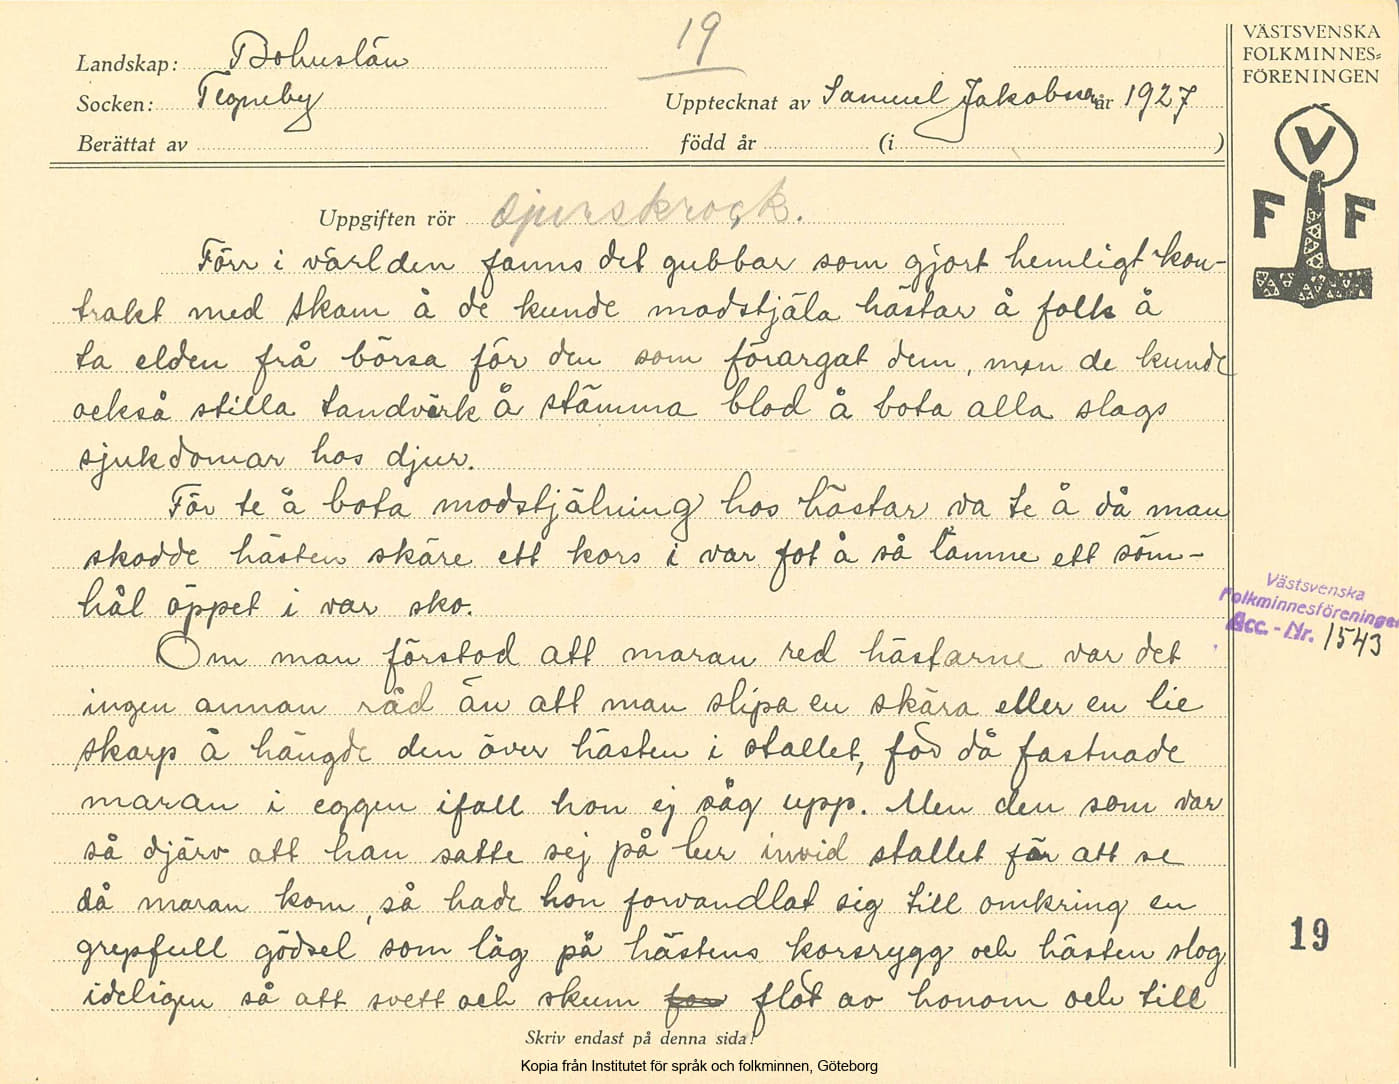 19
Landskap: Bohuslän
Socken: Tegneby
Upptecknat av Samuel Jakobsson år 1927
Berättat av född år (i )
VÄSTSVENSKA
FOLKMINNES-
FÖRENINGEN
V
F F
Uppgiften rör djurskrock.
Förr i världen fanns det gubbar som gjort hemligt kon-
trakt med skam å de kunde modstjäla hästar å folk å
ta elden frå börsa för den som förargat dem, men de kunde
också stilla tandvärk å stämma blod å bota alla slags
sjukdomar hos djur.
För te å bota modstjälning hos hästar va te å då man
skodde hästen skäre ett kors i var fot å så lämne ett söm-
hål öppet i var sko.
Om man förstod att maran red hästarne var det
ingen annan råd än att man slipa en skära eller en lie
skarp å hängde den över hästen i stallet, för då fastnade
maran i eggen ifall hon ej såg upp. Men den som var
så djärv att han satte sej på lur invid stallet för att se
då maran kom, så hade hon forvandlat sig till omkring en
grepfull gödsel som låg på hästens korsrygg och hästen slog
ideligen så att svett och skum flöt av honom och till
Skriv endast på denna sida!
Västsvenska
Folkminnesföreningen
Acc.-Nr. 1543
19
Kopia från Institutet för språk och folkminnen, Göteborg